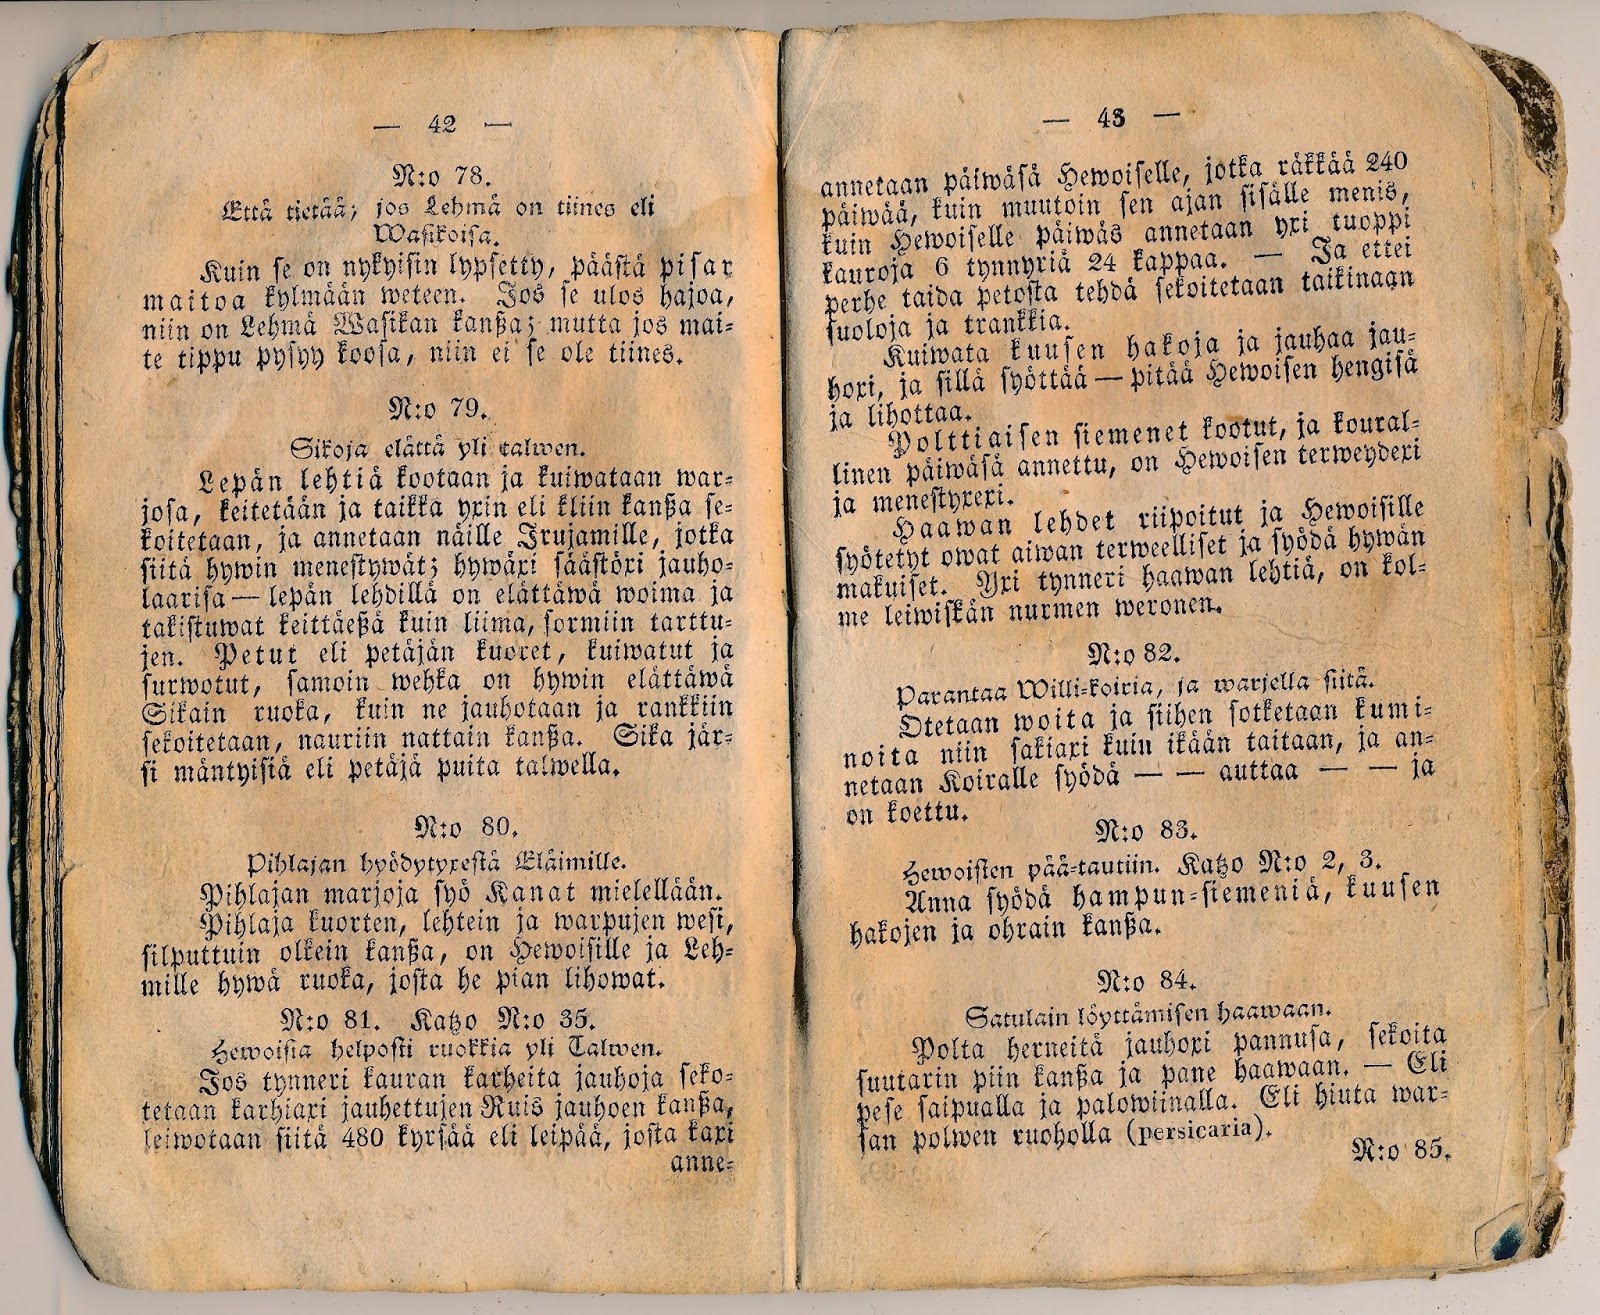 — 42 —
N:o 78.
Että tietää; jos Lehmä on tiines eli
Wasikoisa.
Kuin se on nykyisin lypsetty, päästä pisar
maitoa kylmään weteen. Jos se ulos hajoa,
niin on Lehmä Wasikan kanßa; mutta jos mai-
te tippu pysyy koosa, niin ei se ole tiines.
N:o 79.
Sikoja elättä yli talwen.
Lepän lehtiä kootaan ja kuiwataan war-
josa, keitetään ja taikka yxin eli kliin kanßa se-
koitetaan, ja annetaan näille Irujamille, jotka
siitä hywin menestywät; hywäxi säästöxi jauho-
laarisa — lepän lehdillä on elättäwä woima ja
takistuwat keittäeßä kuin liima, sormiin tarttu-
jen. Petut eli petäjän kuoret, kuiwatut ja
surwotut, samoin wehka on hywin elättäwä
Sikain ruoka, kuin ne jauhotaan ja rankkiin
sekoitetaan, nauriin nattain kanßa. Sika jär-
si mäntyisiä eli petäjä puita talwella.
N:o 80.
Pihlajan hyödytyxestä Eläimille.
Pihlajan marjoja syö Kanat mielellään.
Pihlaja kuorten, lehtein ja warpujen wesi,
silputtuin olkein kanßa, on Hewoisille ja Leh-
mille hywä ruoka, josta he pian lihowat.
N:o 81. Katzo N:o 35.
Hewoisia helposti ruokkia yli Talwen.
Jos tynneri kauran karheita jauhoja seko-
tetaan karhiaxi jauhettujen Ruis jauhoen kanßa,
leiwotaan siitä 480 kyrsää eli leipää, josta kaxi
anne-
— 43 —
annetaan päiwäsä Hewoiselle, jotka räkkää 240
päiwää, kuin muutoin sen ajan sisälle menis,
kuin Hewoiselle päiwäs annetaan yxi tuoppi
kauroja 6 tynnyriä 24 kappaa. — Ja ettei
perhe taida petosta tehdä sekoitetaan taikinaan
suoloja ja trankkia.
Kuiwata kuusen hakoja ja jauhaa jau-
hoxi, ja sillä syöttää — pitää Hewoisen hengisä
ja lihottaa.
Polttiaisen siemenet kootut, ja koural-
linen päiwäsä annettu, on Hewoisen terweydexi
ja menestyxexi.
Haawan lehdet riipoitut ja Hewoisille
syötetyt owat aiwan terweelliset ja syödä hywän
makuiset. Yxi tynneri haawan lehtiä, on kol-
me leiwiskän nurmen weronen.
N:o 82.
Parantaa Willi-koiria, ja warjella siitä.
Otetaan woita ja siihen sotketaan kumi-
noita niin sakiaxi kuin ikään taitaan, ja an-
netaan Koiralle syödä — — auttaa — — ja
on koettu.
N:o 83.
Hewoisten pää-tautiin. Katzo N:o 2, 3.
Anna syödä hampun-siemeniä, kuusen
hakojen ja ohrain kanßa.
N:o 84.
Satulain löyttämisen haawaan.
Polta herneitä jauhoxi pannusa, sekoita
suutarin piin kanßa ja pane haawaan. — Eli
pese saipualla ja palowiinalla. Eli hiuta war-
san polwen ruoholla (persicaria).
N:o 85.